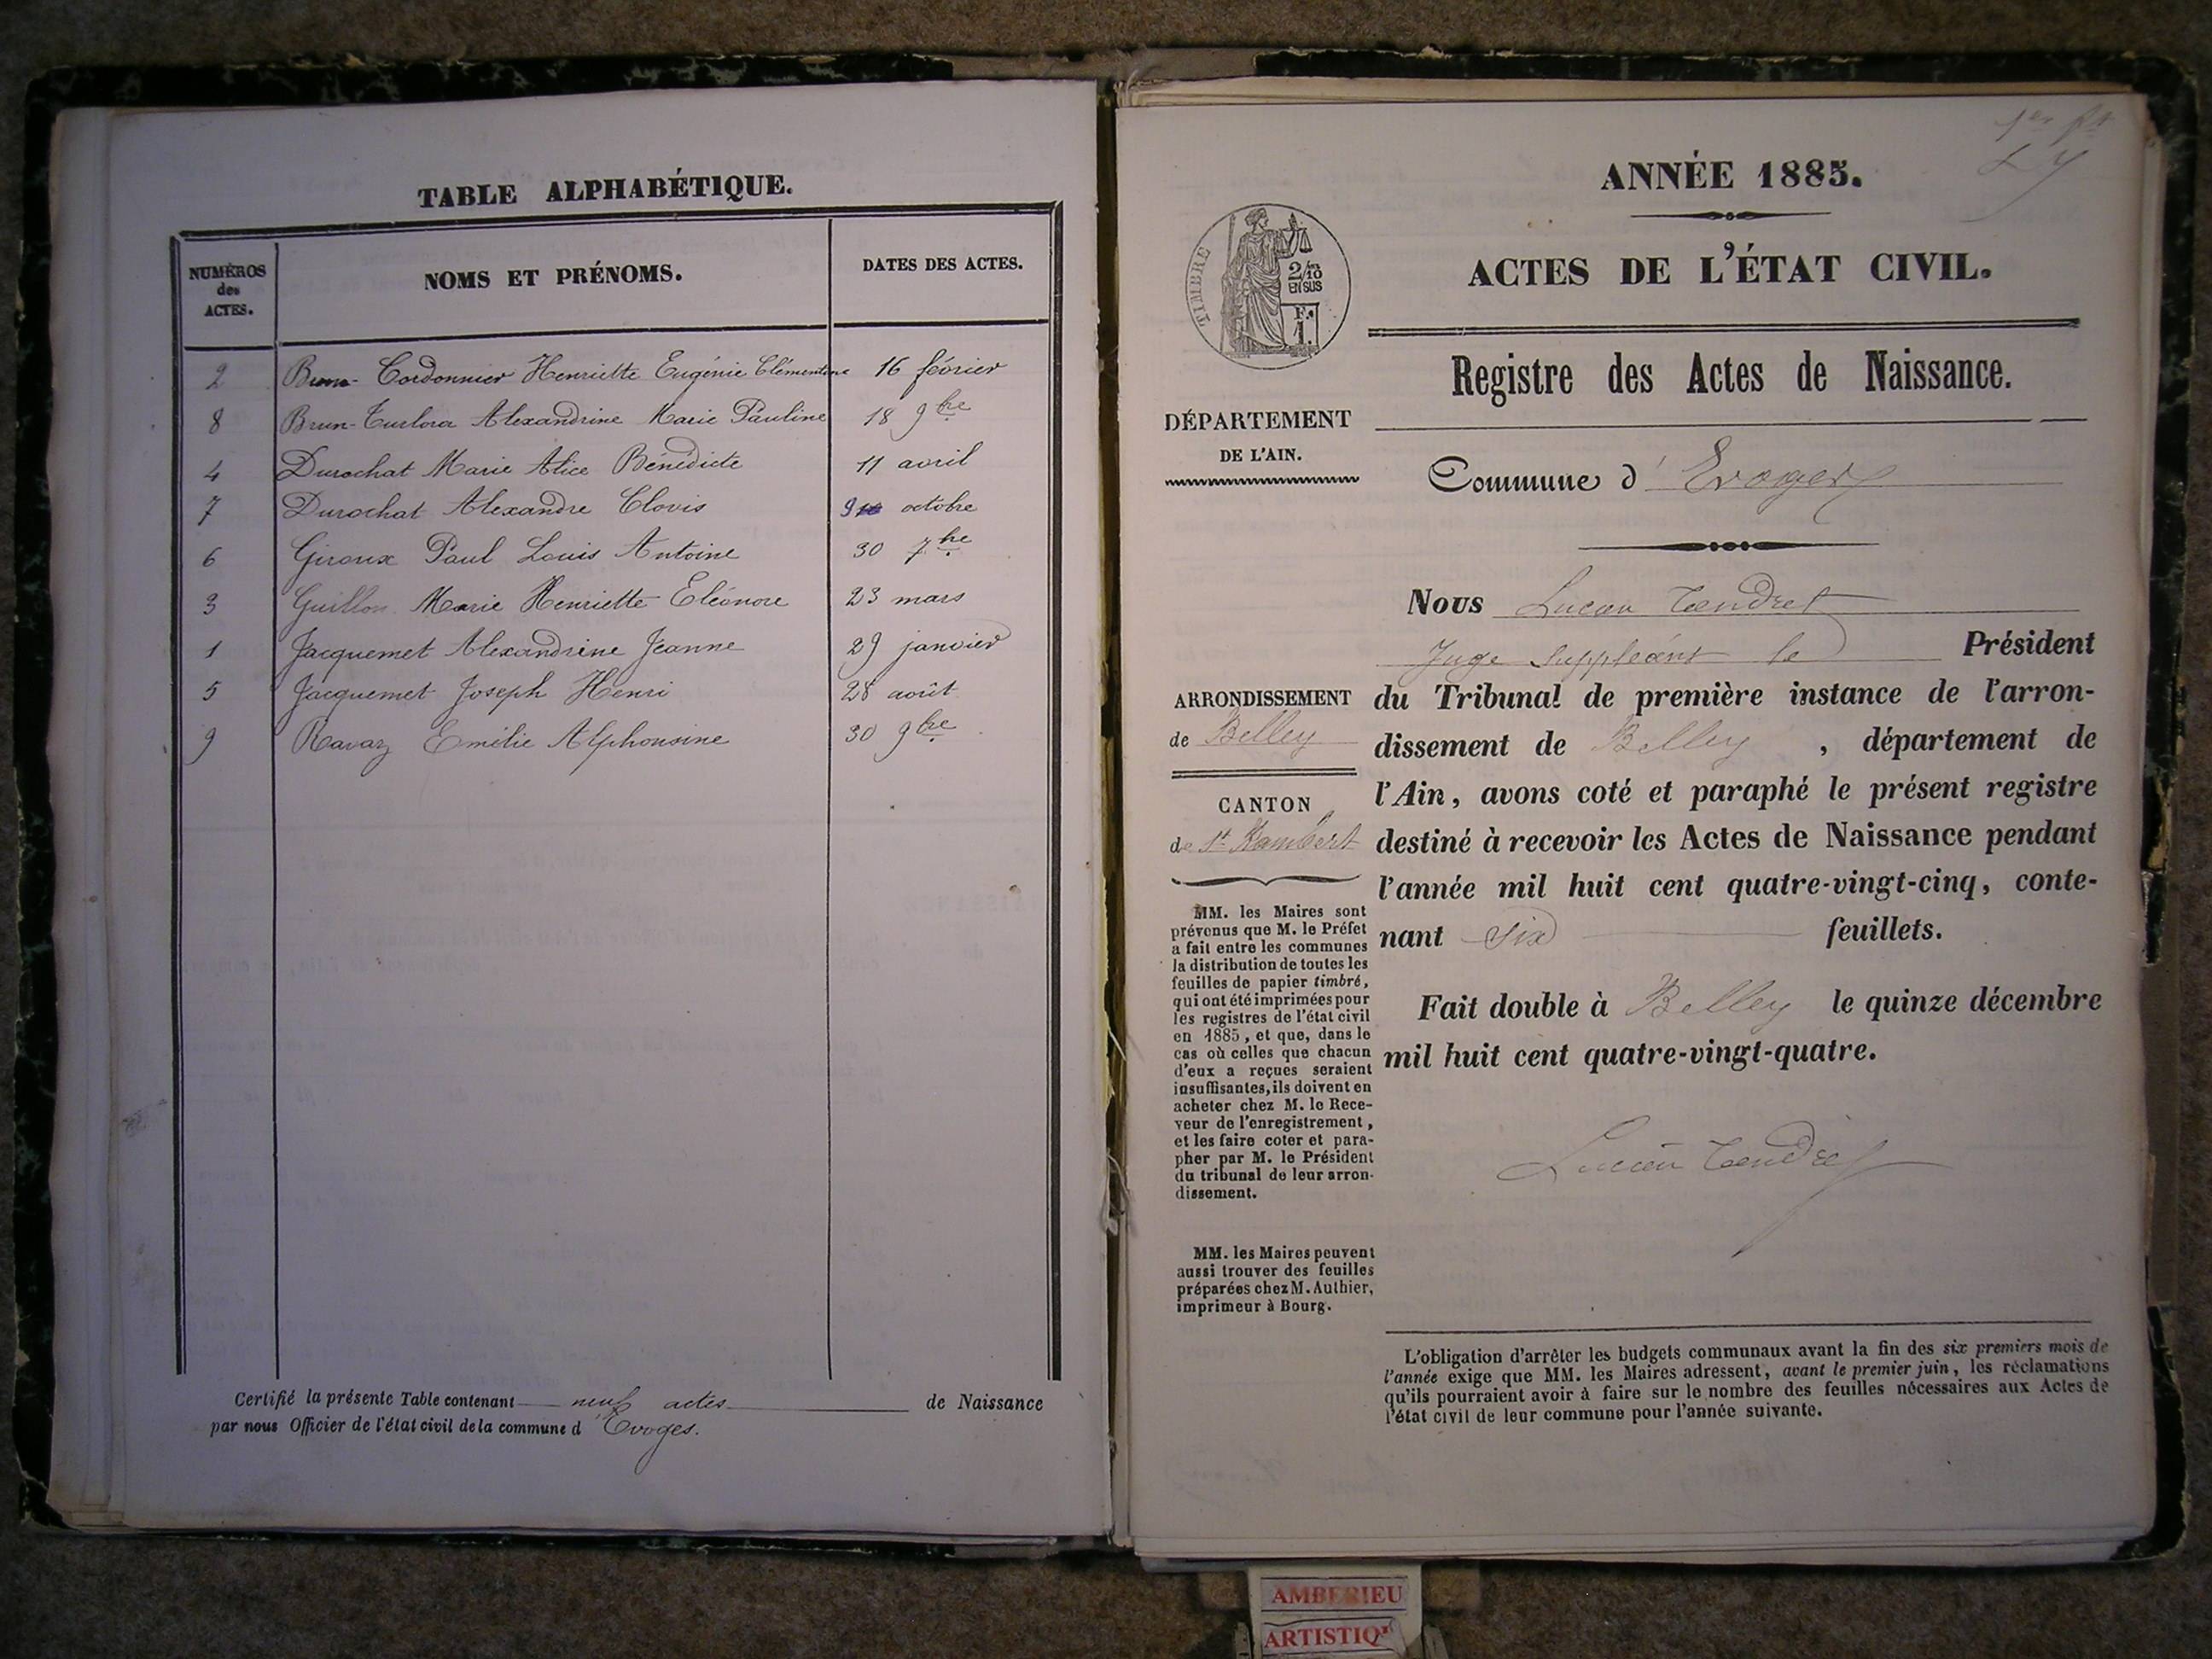 TABLE ALPHABÉTIQUE.
NUMÉROS des ACTES.
NOMS ET PRÉNOMS.
DATES DES ACTES.
2 Brun-Cordonnier Henriette Eugénie Clémentine 16 février
8 Brun-Turlora Alexandrine Marie Pauline 18 9bre
4 Durochat Marie Alice Bénédicte 11 avril
7 Durochat Alexandre Clovis 9 octobre
6 Giroux Paul Louis Antoine 30 7bre
3 Guillon Marie Henriette Eléonore 23 mars
1 Jacquemet Alexandrine Jeanne 29 janvier
5 Jacquemet Joseph Henri 28 août
9 Ravaz Emélie Alphonsine 30 9bre
Certifié la présente Table contenant neuf actes de Naissance
par nous Officier de l'état civil de la commune d'Evoges.
1er ft
ANNÉE 1885.
ACTES DE L'ÉTAT CIVIL.
TIMBRE
2/10
EN SUS
F.
1.
Registre des Actes de Naissance.
DÉPARTEMENT
DE L'AIN.
Commune d'Evoges
Nous Lucien Tendret
Juge Suppléant le Président
ARRONDISSEMENT
de Belley
du Tribunal de première instance de l'arron-
dissement de Belley, département de
l'Ain, avons coté et paraphé le présent registre
destiné à recevoir les Actes de Naissance pendant
l'année mil huit cent quatre-vingt-cinq, conte-
nant Six feuillets.
Fait double à Belley le quinze décembre
mil huit cent quatre-vingt-quatre.
Lucien Tendret
CANTON
de St Rambert
MM. les Maires sont
prévenus que M. le Préfet
a fait entre les communes
la distribution de toutes les
feuilles de papier timbré,
qui ont été imprimées pour
les registres de l'état civil
en 1885, et que, dans le
cas où celles que chacun
d'eux a reçues seraient
insuffisantes, ils doivent en
acheter chez M. le Rece-
veur de l'enregistrement,
et les faire coter et para-
pher par M. le Président
du tribunal de leur arron-
dissement.
MM. les Maires peuvent
aussi trouver des feuilles
préparées chez M. Authier,
imprimeur à Bourg.
L'obligation d'arrêter les budgets communaux avant la fin des six premiers mois de
l'année exige que MM. les Maires adressent, avant le premier juin, les réclamations
qu'ils pourraient avoir à faire sur le nombre des feuilles nécessaires aux Actes de
l'état civil de leur commune pour l'année suivante.
AMBERIEU
ARTISTIQ